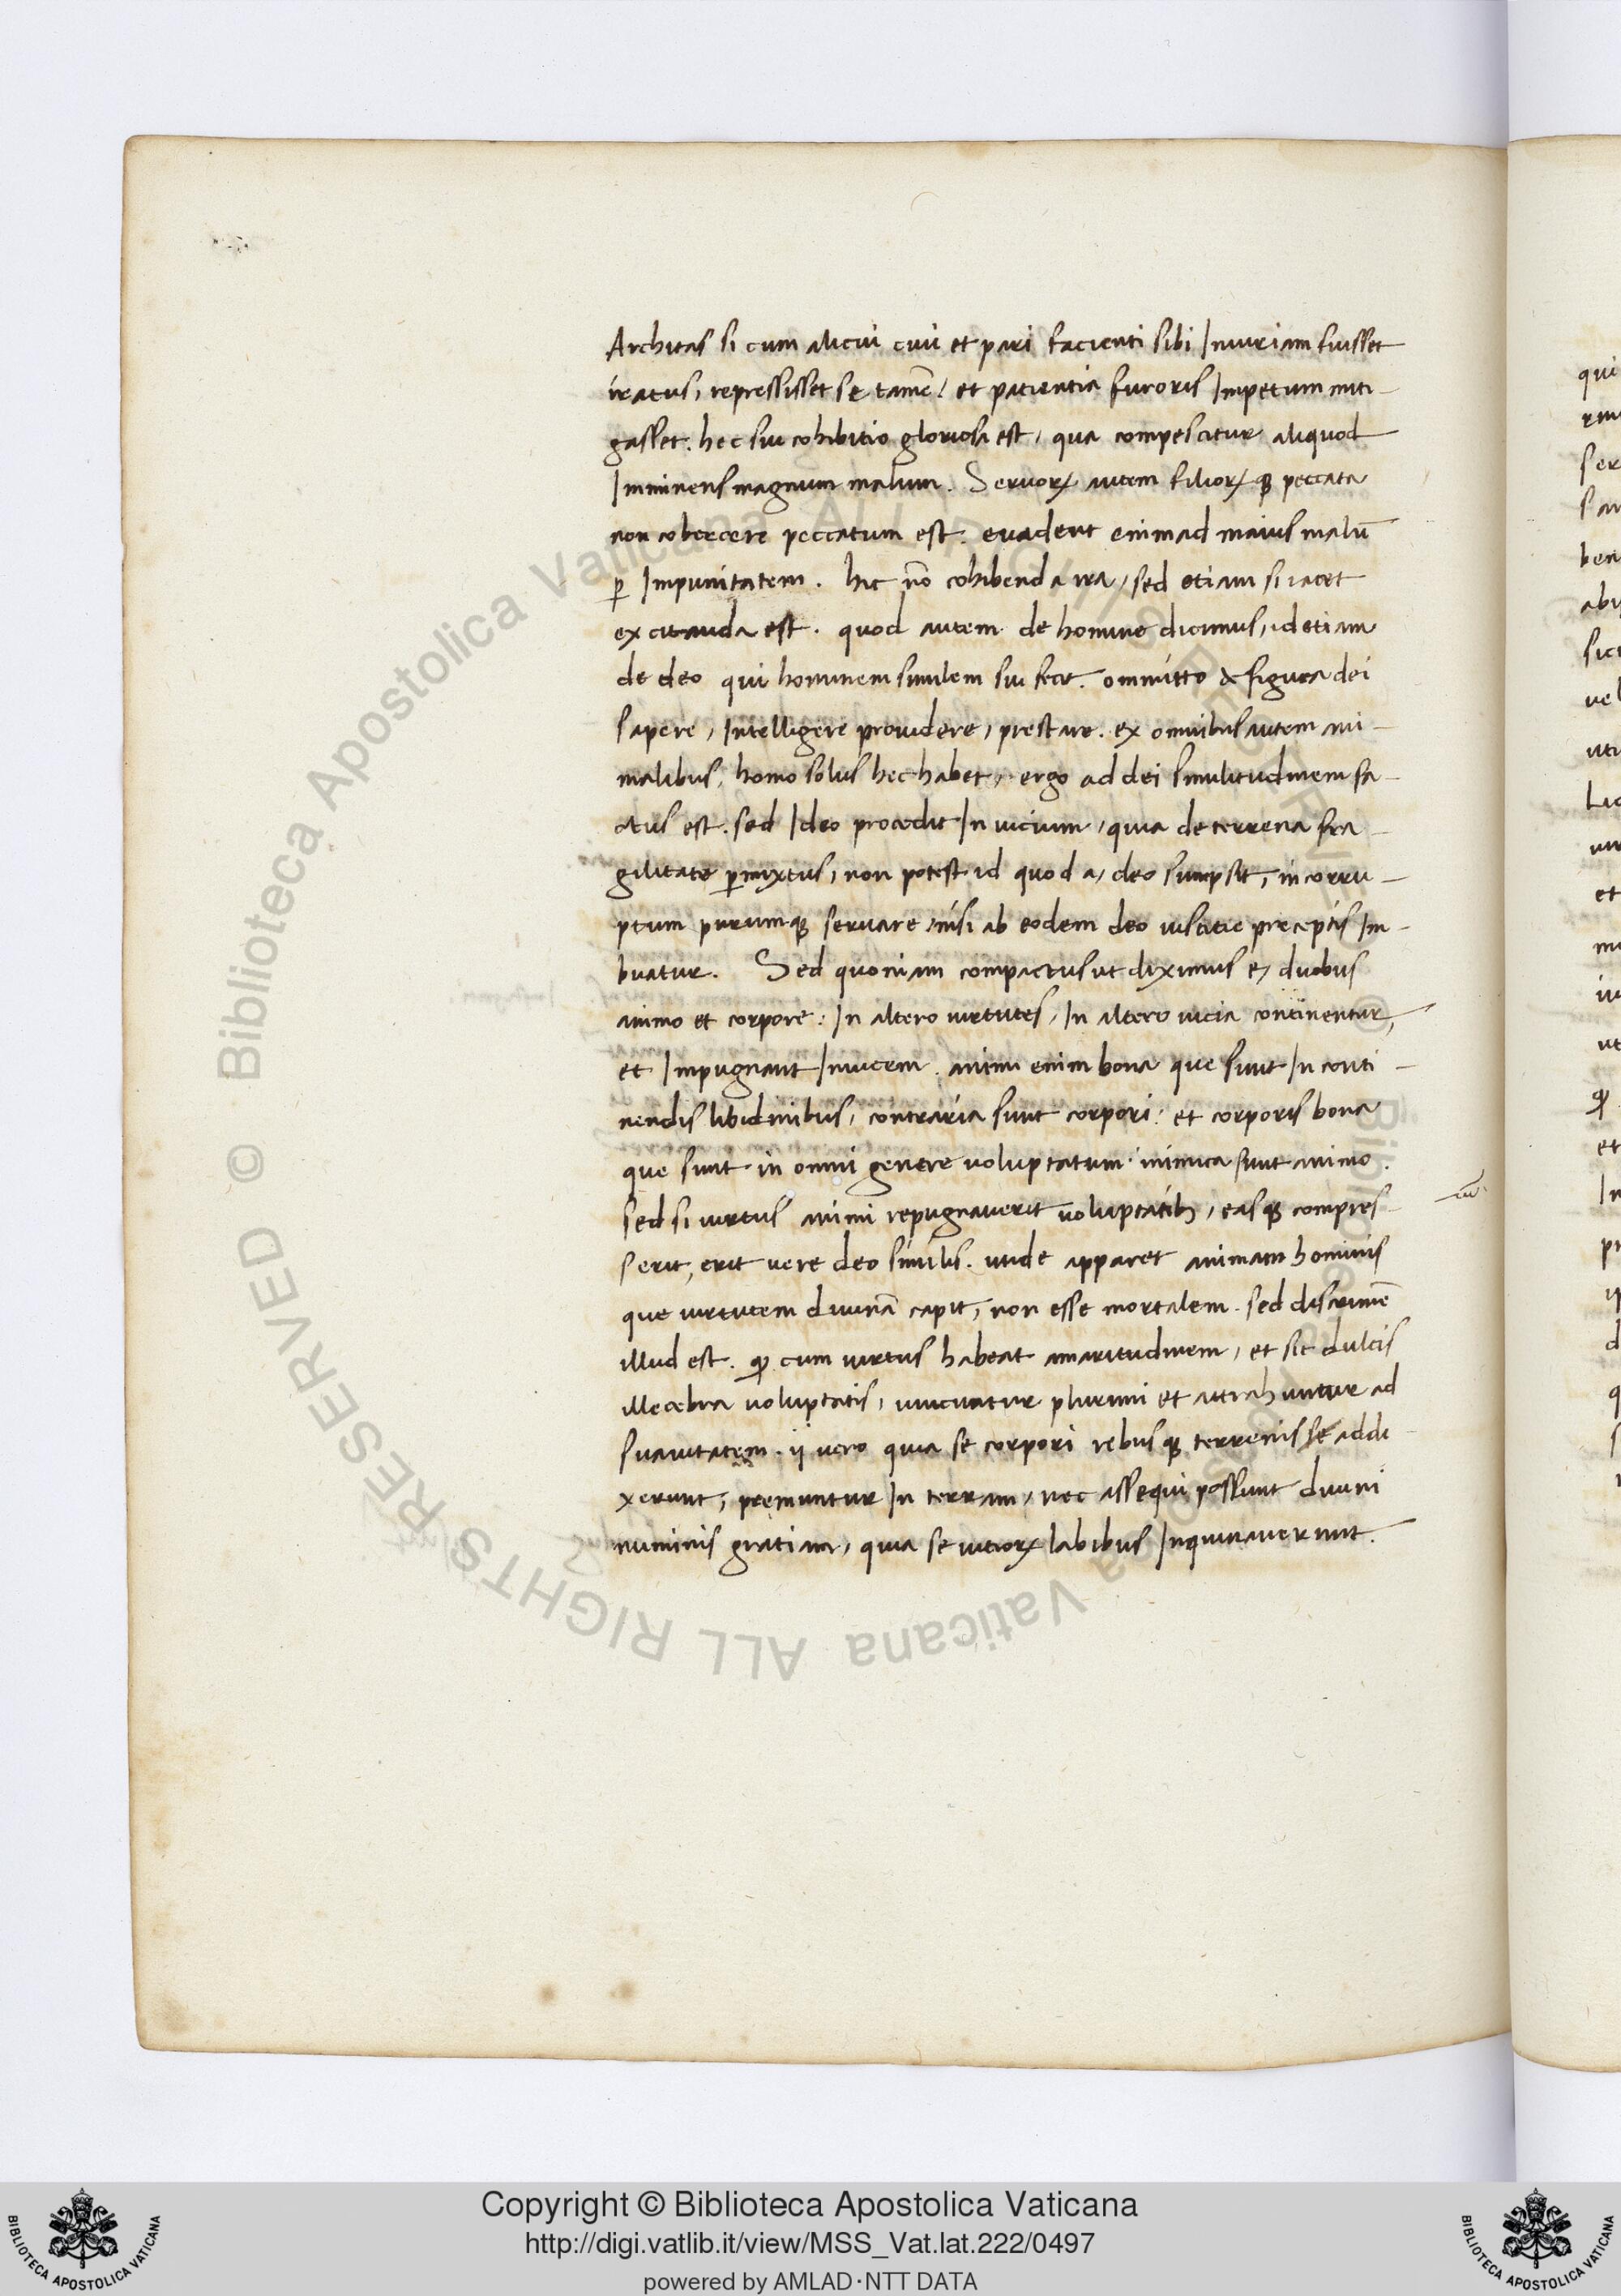 Architas si cum alicui ciui et pari facienti sibi Iniuriam fuisset
iratus, repressisset se tamē, et patientia furoris Impetum miti-
gasset. hec sui cohibitio gloriosa est, qua compescitur aliquod
Imminens magnum malum. Seruoꝝ autem filioꝝ qꝫ peccata
non cohercere peccatum est. euadent enim ad maius malū
ꝑ Impunitatem. hic nō cohibenda ira, sed etiam si iacet
excitanda est. quod autem de homine dicimus, id etiam
de deo qui hominem similem sui fecit. ommitto & figura dei
sapere, Intelligere prouidere, prestare. ex omnibus autem ani-
malibus, homo solus hec habet, ergo ad dei similitudinem fa-
ctus est. sed Ideo procedit In uicium, quia de terrena fra-
gilitate ꝑmixtus, non potest id quod a, deo sumpsit, incorru-
ptum purumqꝫ seruare, nisi ab eodem deo iusticie preceptis Im-
buatur. Sed quoniam compactus ut diximus ex duobus
animo et corpore: In altero uirtutes, In altero uicia continentur,
et Impugnant Inuicem. animi enim bona que sunt In conti-
nendis libidinibus, contraria sunt corpori: et corporis bona
que sunt in omni genere uoluptatum inimica sunt animo.
sed si uirtus animi repugnauerit uoluptatibꝫ, eas qꝫ compres-
serit, erit uere deo similis. unde apparet animam hominis
que uirtutem diuinā capit, non esse mortalem. sed discrimē
illud est. ꝙ cum uirtus habeat amaritudinem, et sit dulcis
illecebra uoluptatis, uincuntur plurimi et attrahuntur ad
suauitatem. ij uero quia se corpori rebus qꝫ terrenis se addi-
xerunt, premuntur In terram, nec assequi possunt diuini
numinis gratiam, quia se uitioꝝ labibus Inquinauerunt.
© Biblioteca Apostolica Vaticana ALL RIGHTS RESERVED
© Biblioteca Apostolica Vaticana ALL RIGHTS RESERVED
Copyright © Biblioteca Apostolica Vaticana
http://digi.vatlib.it/view/MSS_Vat.lat.222/0497
powered by AMLAD·NTT DATA
BIBLIOTECA APOSTOLICA VATICANA
BIBLIOTECA APOSTOLICA VATICANA